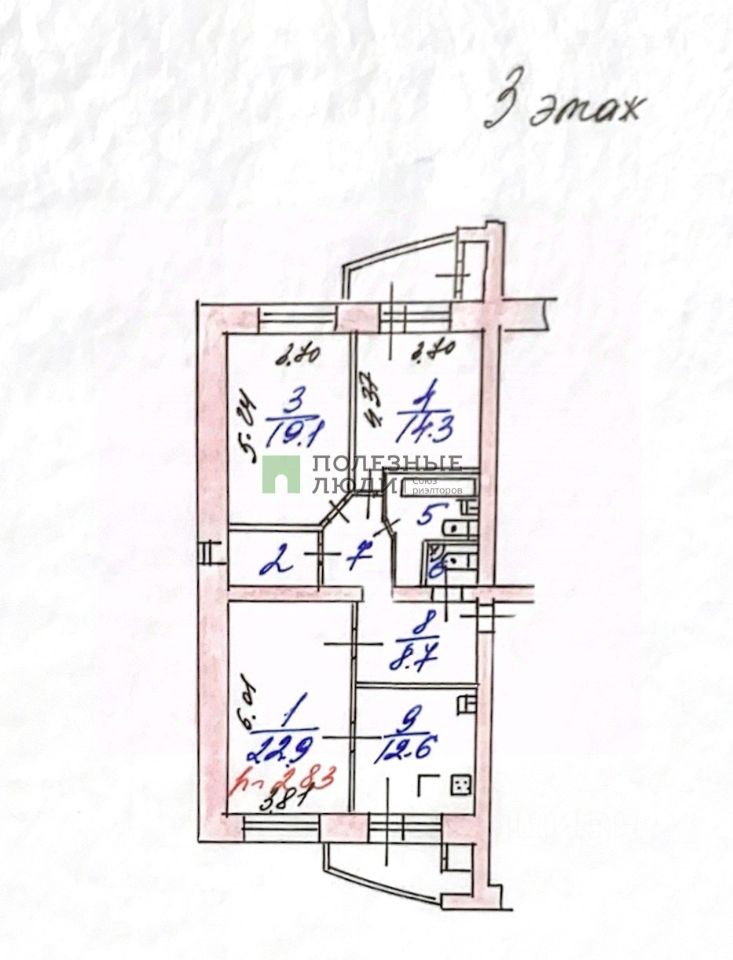 3 этаж
3.70
3.70
5.24
3
19.1
4.37
4
14.3
ПОЛЕЗНЫЕ
ЛЮДИ
СОЮЗ
РИЭЛТОРОВ
5
2
7
6
8
8.7
6.01
1
22.9
h=2.83
3.81
9
12.6